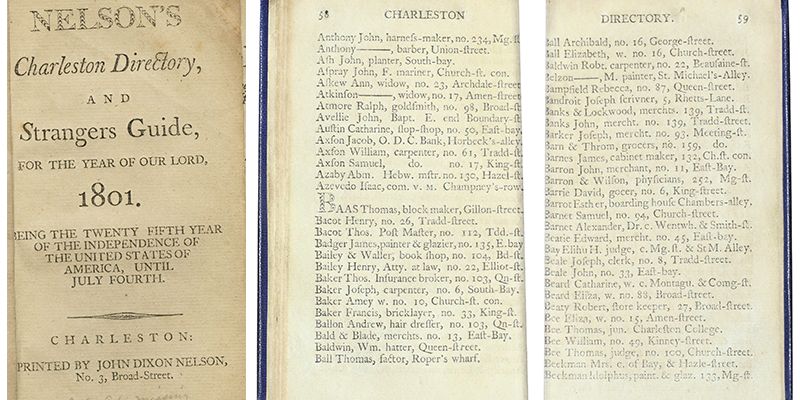 NELSON'S
Charleston Directory,
AND
Strangers Guide,
FOR THE YEAR OF OUR LORD,
1801.
BEING THE TWENTY FIFTH YEAR
OF THE INDEPENDENCE OF
THE UNITED STATES OF
AMERICA, UNTIL
JULY FOURTH.
CHARLESTON:
PRINTED BY JOHN DIXON NELSON,
No. 3, Broad-Street.
58 CHARLESTON
Anthony John, harneſs-maker, no. 234, Mg. ſt
Anthony——, barber, Union-ſtreet.
Aſh John, planter, South-bay.
Aſpray John, F. mariner, Church-ſt. con.
Aſkew Ann, widow, no. 23, Archdale-ſtreet
Atkinson——, widow, no. 17, Amen-ſtreet
Atmore Ralph, goldſmith, no. 98, Broad-ſt
Avellie John, Bapt. E. end Boundary-ſt
Auſtin Catharine, ſlop-ſhop, no. 50, Eaſt-bay
Axſon Jacob, O. D. C. Bank, Horbeck's-alley
Axſon William, carpenter, no. 61, Tradd-ſt
Axſon Samuel, do. no. 17, King-ſt
Azaby Abm. Hebw. mſtr. no. 130, Hazel-ſt
Azevedo Iſaac, com. v. M. Champney's-row.
BAAS Thomas, block maker, Gillon-ſtreet.
Bacot Henry, no. 26, Tradd-ſtreet.
Bacot Thos. Poſt Maſter, no. 112, Tdd-ſt.
Badger James, painter & glazier, no. 135, E. bay
Bailey & Waller, book ſhop, no. 104, Bd-ſt
Bailey Henry, Atty. at law, no. 22, Elliot-ſt.
Baker Thos. Inſurance broker, no. 103, Qn-ſt.
Baker Joſeph, carpenter, no. 6, South-Bay.
Baker Amey w. no. 10, Church-ſt. con.
Baker Francis, bricklayer, no. 33, King-ſt.
Ballon Andrew, hair dreſſer, no. 103, Qn-ſt.
Bald & Blade, merchts. no. 13, Eaſt-Bay.
Baldwin, Wm. hatter, Queen-ſtreet.
Ball Thomas, factor, Roper's wharf.
DIRECTORY. 59
Ball Archibald, no. 16, George-ſtreet.
Ball Elizabeth, w. no. 16, Church-ſtreet.
Baldwin Robt. carpenter, no. 22, Beaufaine-ſt.
Belzon——, M. painter, St. Michael's-Alley.
Bampfield Rebecca, no. 87, Queen-ſtreet.
Bandroit Joſeph ſcrivner, 5, Rhetts-Lane.
Banks & Lockwood, merchts. 139, Tradd-ſt.
Banks John, mercht. no. 139, Tradd-ſtreet.
Barker Joſeph, mercht. no. 93, Meeting-ſt.
Barn & Throm, grocers, no. 159, do.
Barnes James, cabinet maker, 132, Ch. ſt. con.
Barron John, merchant, no. 11, Eaſt-Bay.
Barron & Wilſon, phyſicians, 252, Mg-ſt
Barrie David, gocer, no. 6, King-ſtreet.
Barrot Eſther, boarding houſe Chambers-alley.
Barnet Samuel, no. 94, Church-ſtreet.
Barnet Alexander, Dr. c. Wentwh. & Smith-ſt.
Beatie Edward, mercht. no. 45, Eaſt-bay.
Bay Elihu H. judge, c. Mg. ſt & St M. Alley.
Beale Joſeph, clerk, no. 8, Tradd-ſtreet.
Beale John, no. 33, Eaſt-bay.
Beard Catharine, w. c. Montagu. & Comg-ſt.
Beard Eliza, w. no. 88, Broad-ſtreet.
Beaty Robert, ſtore keeper, 27, Broad-ſtreet.
Bee Eliza, w. no. 15, Amen-ſtreet.
Bee Thomas, jun. Charleſton College.
Bee William, no. 49, Kinney-ſtreet.
Bee Thomas, judge, no. 100, Church-ſtreet.
Beekman Mrs. c. of Bay, & Hazle-ſtreet.
Beekman Adolphus, paint. & glaz. 133, Mg-ſt.